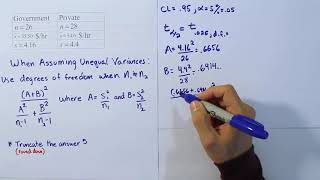 Government
Private
n = 26
n = 28
$/hr
$/hr
s = 4.16
s = 4.4
When Assuming Unequal Variances:
Use degrees of freedom when n₁ ≠ n₂
(A+B)²
A²/n₁-1 + B²/n₂-1
where A = S₁²/n₁ and B = S₂²/n₂
* Truncate the answer
(round down)
CL = .95, α = 5% = .05
t α/2 = t .025, d.f.
A = 4.16²/26 = .6656
B = 4.4²/28 = .6914..